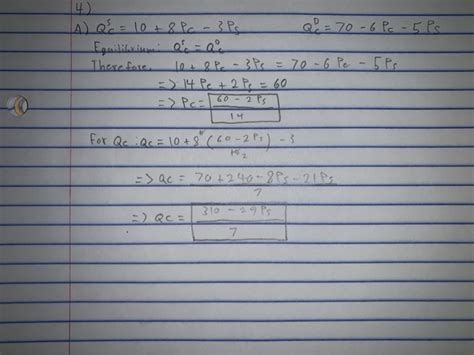 4)
A) Q_C^S = 10 + 8 P_C - 3 P_S Q_C^D = 70 - 6 P_C - 5 P_S
Equilibrium: Q_C^S = Q_C^D
Therefore, 10 + 8 P_C - 3 P_S = 70 - 6 P_C - 5 P_S
=> 14 P_C + 2 P_S = 60
=> P_C = (60 - 2 P_S) / 14
For Q_C : Q_C = 10 + 8 (60 - 2 P_S) - 3
=> Q_C = (70 + 240 - 8 P_S - 21 P_S) / 7
=> Q_C = (310 - 29 P_S) / 7